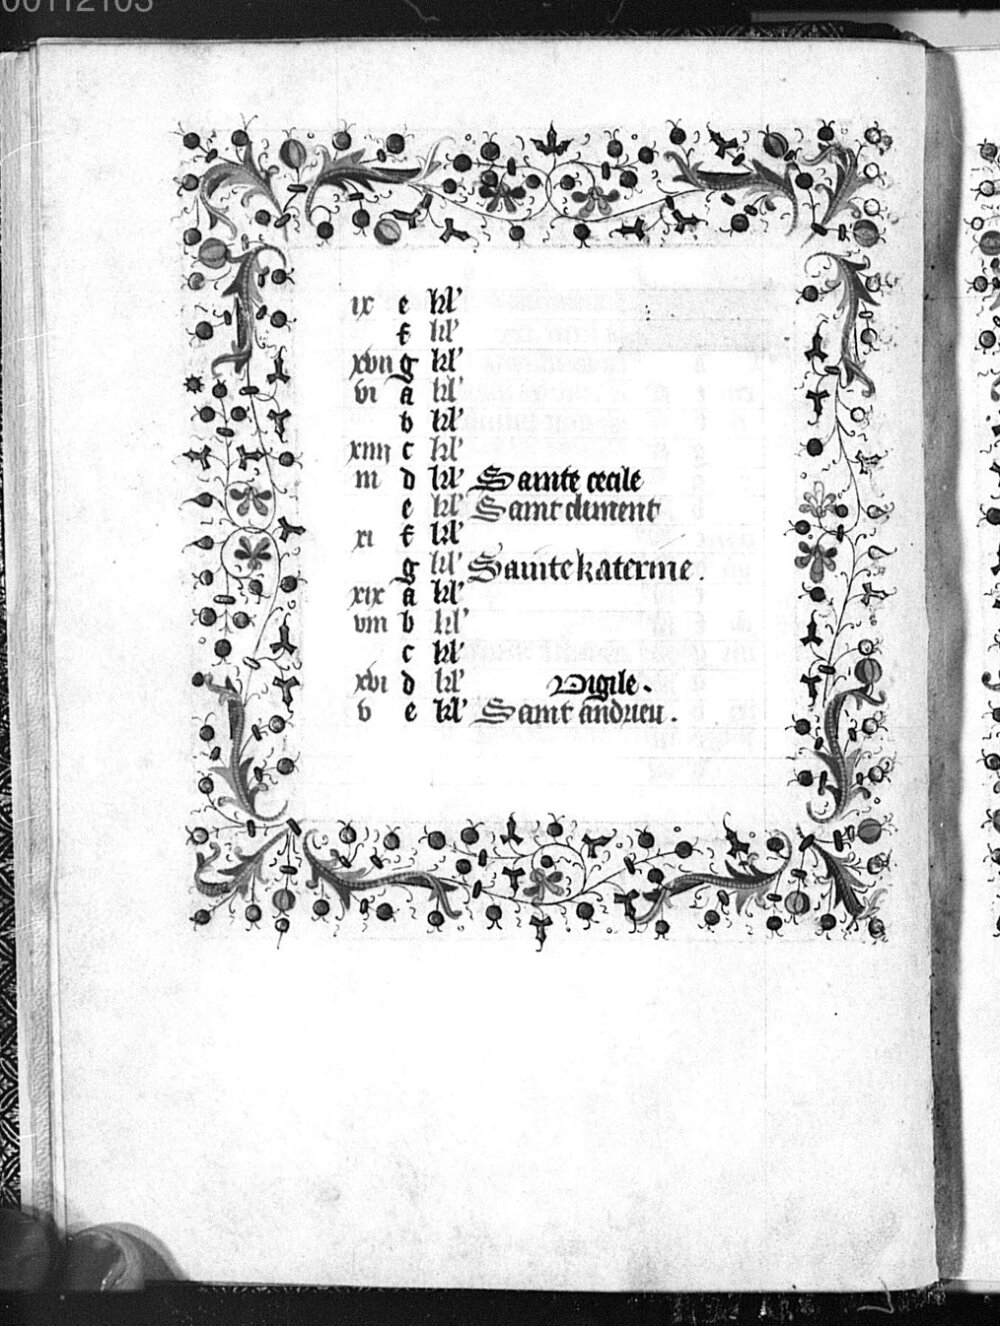 00112103
ix e kl'
f kl'
xvii g kl'
vi a kl'
b kl'
xiiij c kl'
iii d kl' Sainte cecile
e kl' Saint climent
xi f kl'
g kl' Sainte katerine.
xix a kl'
viii b kl'
c kl'
xvi d kl' Vigile.
v e kl' Saint andrieu.